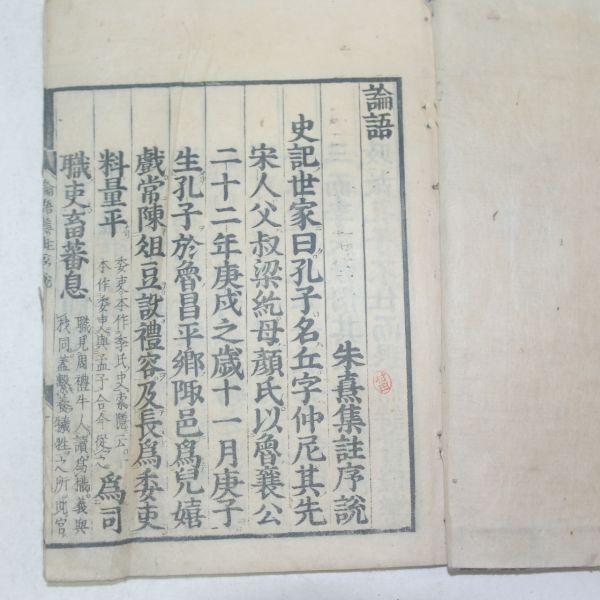 論語
朱熹集註序說
史記世家曰孔子名丘字仲尼其先
宋人父叔梁紇母顏氏以魯襄公
二十二年庚戌之歲十一月庚子
生孔子於魯昌平鄉陬邑爲兒嬉
戲常陳俎豆設禮容及長爲委吏
料量平委吏本作季氏史索隱云一本作委吏與孟子合今從之爲司
職吏畜蕃息職見周禮牛人讀爲樴義與杙同蓋繫養犧牲之所此官